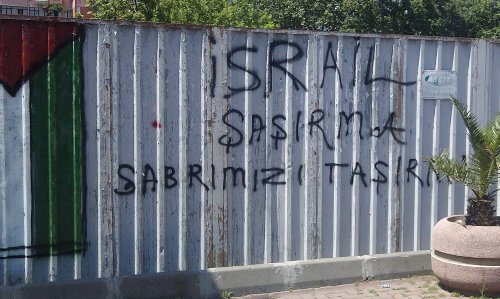 İSRAİL
ŞAŞIRMA
SABRIMIZI TAŞIRMA